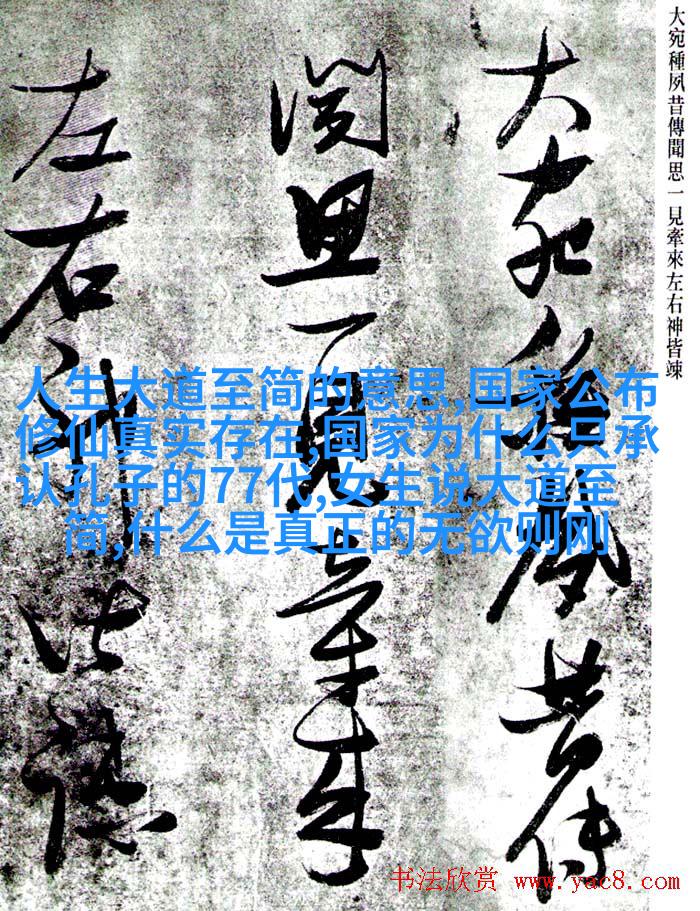 大宛種夙昔傳聞思一見牽來左右神皆竦
大宛種夙昔傳
聞思一見牽來
左右神皆竦
人生大道至简的意思,国家公布
修仙真实存在,国家为什么只承
认孔子的77代,女生说大道至
简,什么是真正的无欲则刚
书法欣赏 www.yac8.com